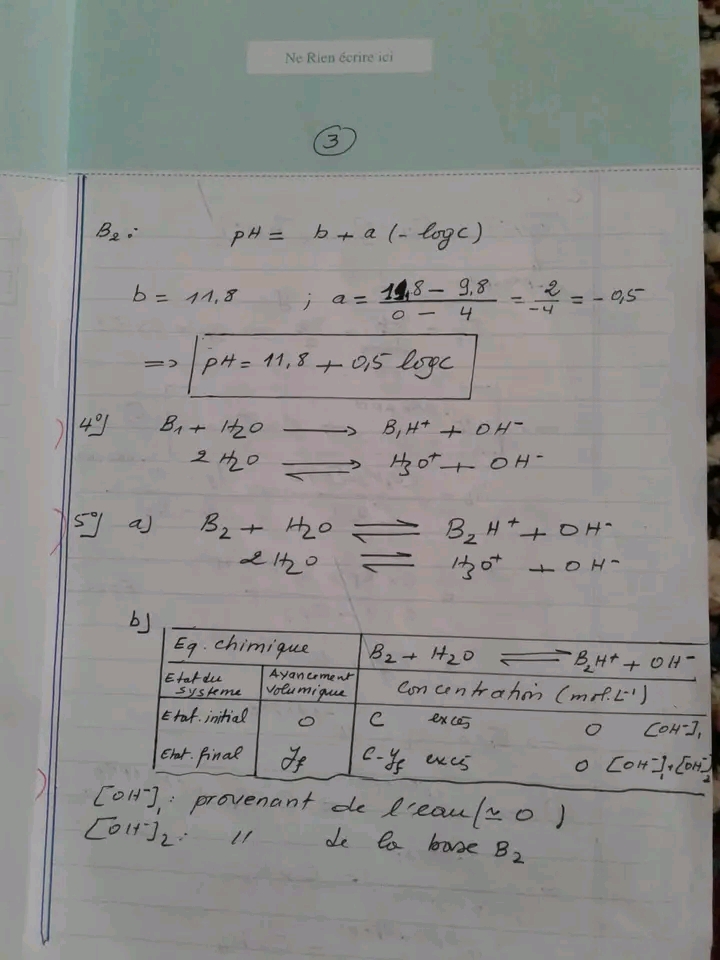 Ne Rien écrire ici
3
B₂: pH = b + a (- logc)
b = 11,8 ; a = (11,8 - 9,8)/(0 - 4) = 2/-4 = - 0,5
=> pH = 11,8 + 0,5 logc
4°] B₁ + H₂O ⟶ B₁H⁺ + OH⁻
2 H₂O ⇌ H₃O⁺ + OH⁻
5°] a) B₂ + H₂O ⇌ B₂H⁺ + OH⁻
2 H₂O ⇌ H₃O⁺ + OH⁻
b)
Eq. chimique B₂ + H₂O ⇌ B₂H⁺ + OH⁻
Etat du système Avancement volumique Concentration (mol.L⁻¹)
Etat. initial 0 C excès 0 [OH⁻]₁
Etat. final y_f C - y_f excès 0 [OH⁻]₁ + [OH⁻]₂
[OH⁻]₁ : provenant de l'eau (≃ 0)
[OH⁻]₂ : " de la base B₂